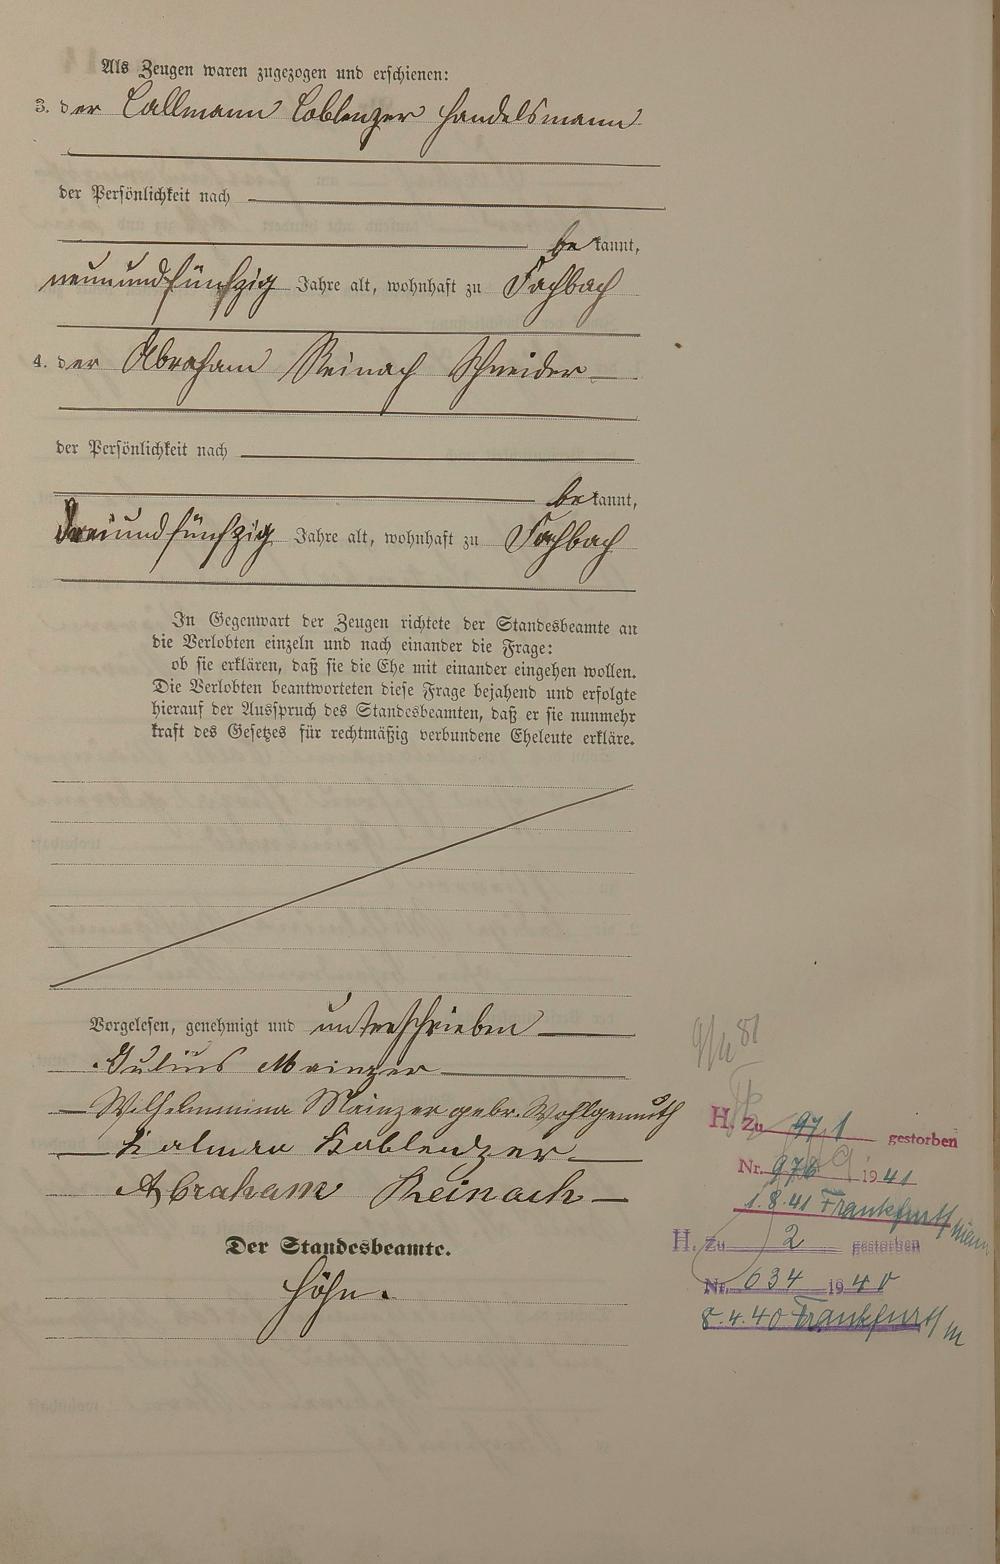 Als Zeugen waren zugezogen und erschienen:
3. der Callmann Coblenzer Handelsmann
der Persönlichkeit nach
be kannt,
neunundfünfzig Jahre alt, wohnhaft zu Fachbach
4. der Abraham Reinach Schneider
der Persönlichkeit nach
be kannt,
dreiundfünfzig Jahre alt, wohnhaft zu Fachbach
In Gegenwart der Zeugen richtete der Standesbeamte an
die Verlobten einzeln und nach einander die Frage:
ob sie erklären, daß sie die Ehe mit einander eingehen wollen.
Die Verlobten beantworteten diese Frage bejahend und erfolgte
hierauf der Ausspruch des Standesbeamten, daß er sie nunmehr
kraft des Gesetzes für rechtmäßig verbundene Eheleute erkläre.
Vorgelesen, genehmigt und unterschrieben
Julius Mainzer
Wilhelmina Mainzer gebr. Wohlgemuth
Koblenzer
Abraham Reinach
Der Standesbeamte.
Höhn.
H. Zu gestorben
Nr. 1941
1.8.41 Frankfurt/Main
H. Zu 2 gestorben
Nr. 634 1940
8.4.40 Frankfurt/M